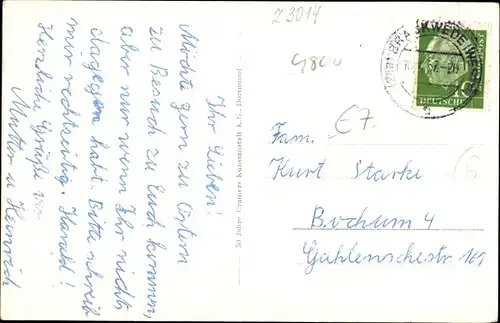 Z 3014
9800
Ihr Lieben!
Möchte gern zu Ostern
zu Besuch zu Euch kommen,
aber nur wenn Ihr nichts
dagegen habt. Bitte schreibt
mir rechtzeitig. Harald!
Herzliche Grüße von
Mutter u Heinrich
Cramers Kunstanstalt K.G., Dortmund
BRACKWEDE (WESTF)
DEUTSCHE
E7.
Fam.
Kurt Starke
Bochum 4
Gahlenschestr 161